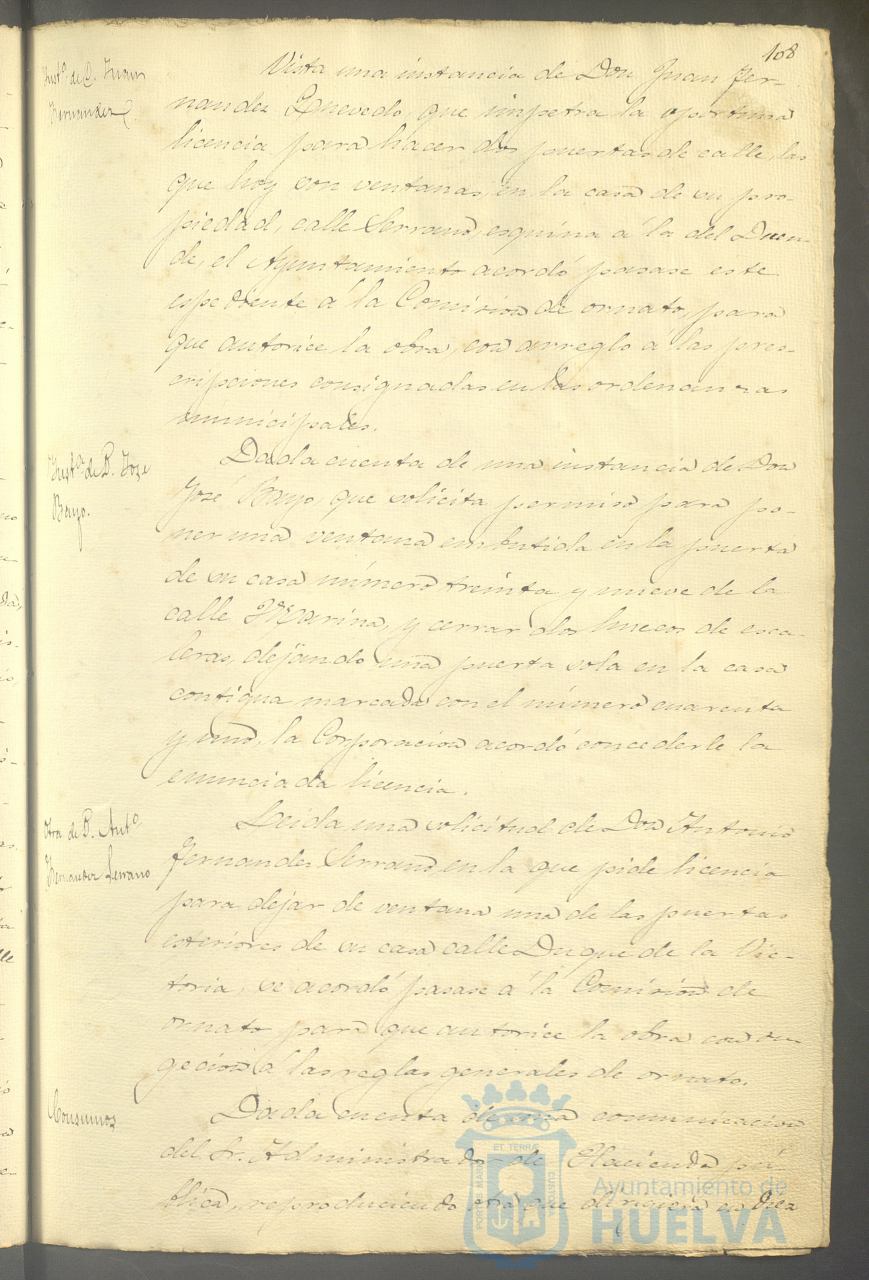 108
Inst.ª de D. Juan
Fernandez
Vista una instancia de Don Juan Fer-
nandez Quevedo, que impetra la oportuna
licencia para hacer dos puertas de calle, las
que hoy son ventanas, en la casa de su pro-
piedad, calle Serrano, esquina á la del Duen-
de, el Ayuntamiento acordó pasase este
espediente á la Comision de ornato, para
que autorice la obra, con arreglo á las pres-
cripciones consignadas en las ordenanzas
municipales.
Inst.ª de D. Jose
Bayo.
Dada cuenta de una instancia de Don
José Bayo, que solicita permiso para po-
ner una ventana embutida en la puerta
de su casa número treinta y nueve de la
calle Marina, y cerrar dos huecos de esca-
leras, dejando una puerta sola en la casa
contigua marcada con el número cuarenta
y uno, la Corporacion acordó concederle la
enunciada licencia.
Otra de D. Ant.º
Fernandez Serrano
Leida una solicitud de Don Antonio
Fernandez Serrano, en la que pide licencia
para dejar de ventana una de las puertas
esteriores de su casa calle Duque de la Vic-
toria, se acordó pasase á la Comision de
ornato para que autorice la obra con su
gecion á las reglas generales de ornato.
Consumos
Dada cuenta de una comunicacion
del Sr. Administrador de Hacienda pú-
blica, reproduciendo otra que dirigiera en diez
PORTUS MARIS
ET TERRÆ
CUSTODIA
Ayuntamiento de
HUELVA